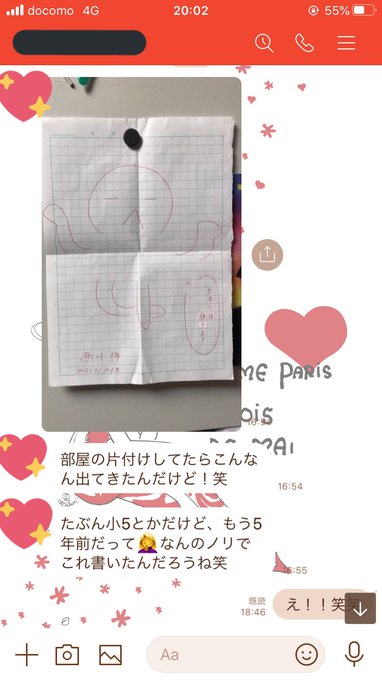 docomo 4G
20:02
55%
ME PARIS
OIS
DE MAI
16:54
部屋の片付けしてたらこんな
ん出てきたんだけど！笑
16:54
たぶん小5とかだけど、もう5
年前だって🤦‍♀️なんのノリで
これ書いたんだろうね笑
16:55
既読
18:46
え！！笑
Aa